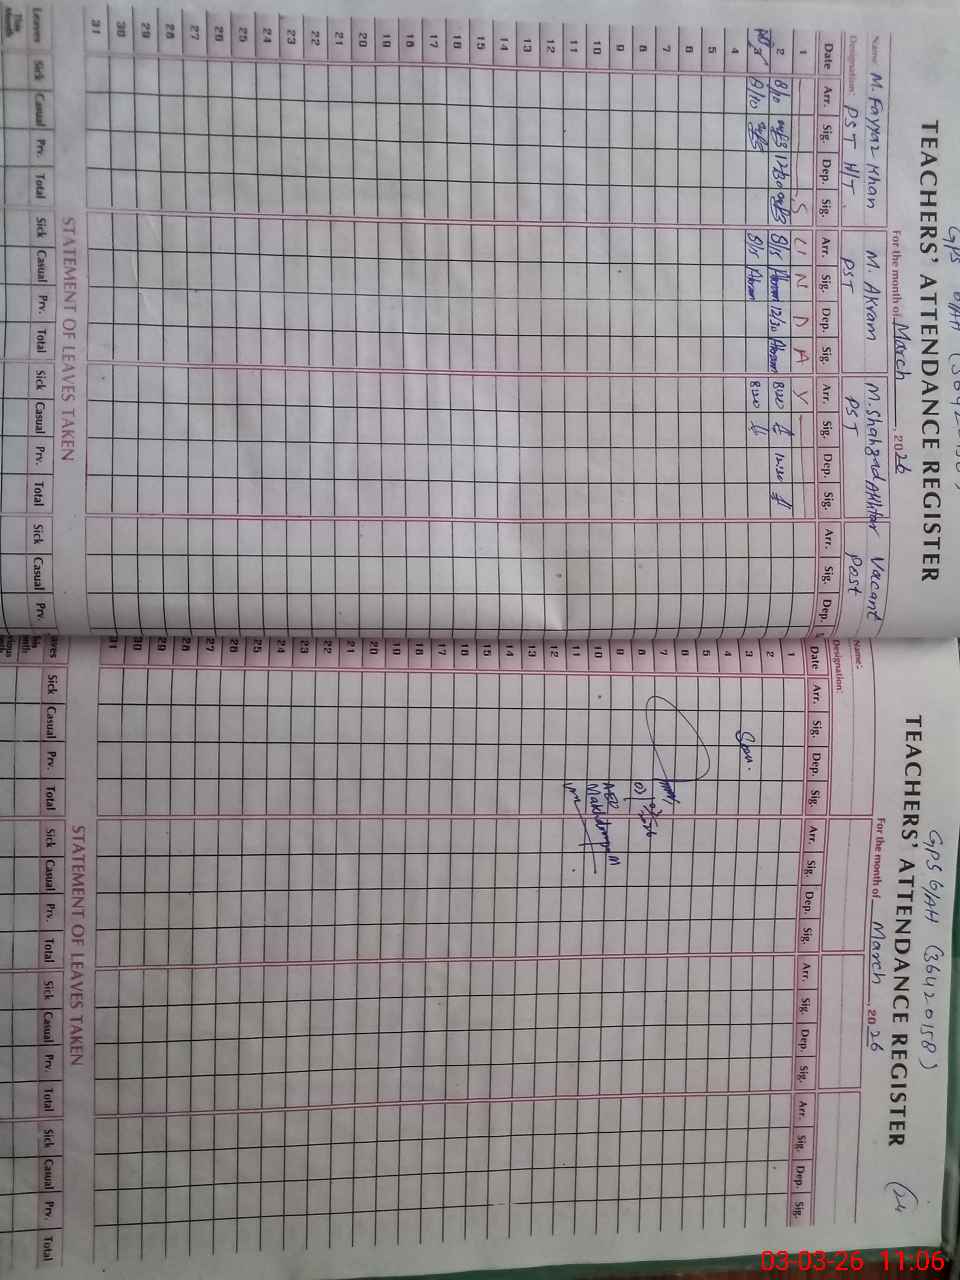 GPS 6/AH (36420158)
TEACHERS' ATTENDANCE REGISTER
For the month of March, 2026
Name: M. Fayyaz Khan M. Akram M. Shahzad Akhtar Vacant
Designation: PST H/T PST PST Post
Date Arr. Sig. Dep. Sig. Arr. Sig. Dep. Sig. Arr. Sig. Dep. Sig. Arr. Sig. Dep.
1 S U N D A Y
2 8/10 12/30 8/15 Akram 12/30 Akram 8:00 12:30
3 8/10 8/15 Akram 8:00
4
5
6
7
8
9
10
11
12
13
14
15
16
17
18
19
20
21
22
23
24
25
26
27
28
29
30
31
STATEMENT OF LEAVES TAKEN
Leaves Sick Casual Prv. Total Sick Casual Prv. Total Sick Casual Prv. Total Sick Casual Prv.
This
Month
GPS 6/AH (36420158)
TEACHERS' ATTENDANCE REGISTER
For the month of March, 2026
Name:-
Designation:
Date Arr. Sig. Dep. Sig. Arr. Sig. Dep. Sig. Arr. Sig. Dep. Sig. Arr. Sig. Dep. Sig.
1
2
3
4
5
6
7
8
9
10
11
12
13
14
15
16
17
18
19
20
21
22
23
24
25
26
27
28
29
30
31
AEO
STATEMENT OF LEAVES TAKEN
Sick Casual Prv. Total Sick Casual Prv. Total Sick Casual Prv. Total Sick Casual Prv. Total
03-03-26 11:06